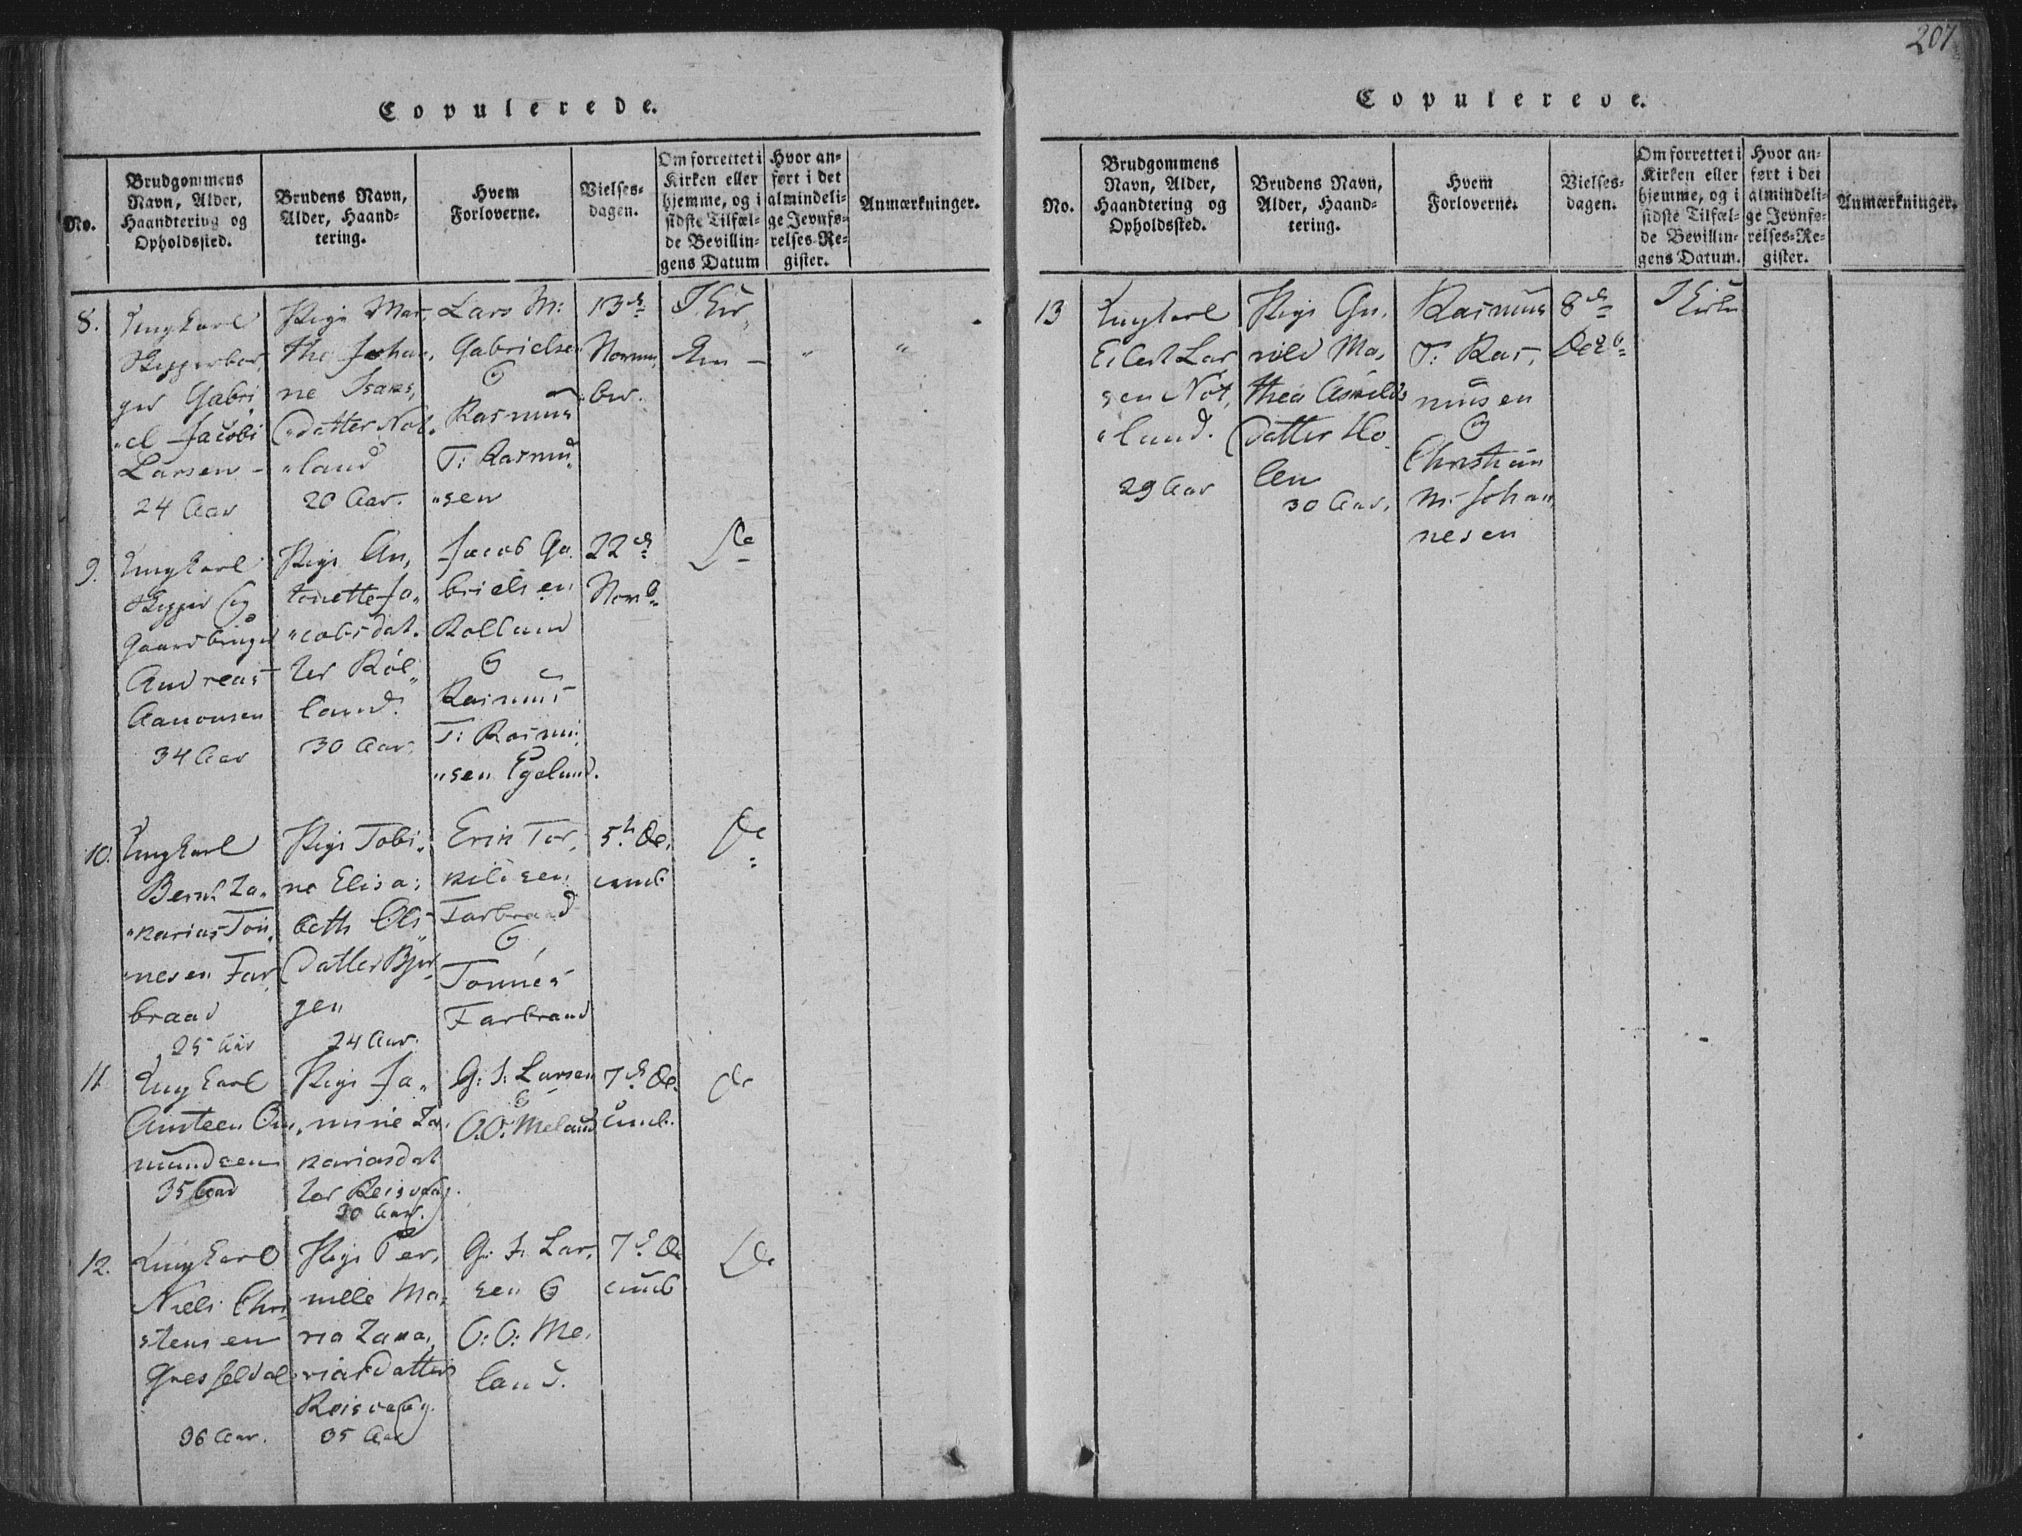 207
Copulerede.
No.
Brudgommens
Navn, Alder,
Haandtering og
Opholdssted.
Brudens Navn,
Alder, Haand-
tering.
Hvem
Forloverne.
Vielses-
dagen.
Om forrettet i
Kirken eller
hjemme, og i
sidste Tilfæl-
de Bevillin-
gens Datum
Hvor an-
ført i det
almindeli-
ge Jevnfø-
relses-Re-
gister.
Anmærkninger.
8.
Ungkarl
Gabri
"el Jacobi
Larsen
24 Aar
Pige Mar,
the Joha,
ne Isaks,
"datter Nøt,
"land
20 Aar.
Lars M:
Gabrielsen
&
Rasmus
T: Rasmu,
"sen
13de
Novem,
ber.
I Kir,
ken
"
"
9.
Ungkarl
Skipper og
Gaardbruger
Andreas
Aanonsen
34 Aar
Pige An,
tonette Ja,
"cobsdat,
ter Røl,
land.
30 Aar.
Jacob Ga,
brielsen
Rølland
&
Rasmus
T: Rasmu,
"sen Egeland.
22de
Novb
Do
10.
Ungkarl
Bernt Za,
"karias Tøn,
"nesen Far,
braad
25 Aar
Pige Tobi,
ne Elisa,
beth Ols,
datter Bjør,
gen
24 Aar.
Erik Tor,
kildsen
Farbraad
&
Tønnes
Farbraad
5te De,
cemb
Do
11.
Ungkarl
Amteen Om,
mundsen
35 Aar
Pige Ja,
"mine Za,
kariasdat
ter Reisvaag.
30 Aar.
G: J: Larsen
&
O.O. Meland
7de De,
cemb.
Do
12.
Ungkarl
Niels Chri
stensen
Gresseldal
36 Aar.
Pige Per,
nille Ma,
ria Zaka,
riasdatter
Reisvaag.
35 Aar
G: J: Lar,
sen &
O: O: Me,
land.
7de De
cemb
Do
Copulerede.
No.
Brudgommens
Navn, Alder,
Haandtering og
Opholdssted.
Brudens Navn,
Alder, Haand-
tering.
Hvem
Forloverne.
Vielses-
dagen.
Om forrettet i
Kirken eller
hjemme, og i
sidste Tilfæl-
de Bevillin-
gens Datum.
Hvor an-
ført i det
almindeli-
ge Jevnfø-
relses-Re-
gister.
Anmærkninger.
13
Ungkarl
Eilert Lar
sen Nøt,
"land.
29 Aar
Pige Gu,
nild Ma,
thea Asmilds
datter Ho,
len
30 Aar.
Rasmus
T: Ras,
musen
&
Christian
M: Johan,
nesen
8de
Decb
I Kirken